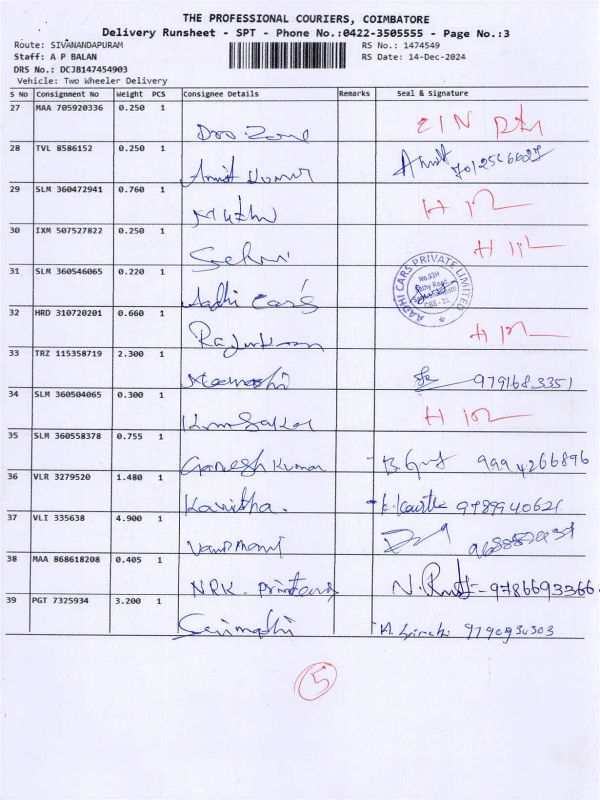 THE PROFESSIONAL COURIERS, COIMBATORE
Delivery Runsheet - SPT - Phone No.:0422-3505555 - Page No.:3
Route: SIVANANDAPURAM
RS No.: 1474549
Staff: A P BALAN
RS Date: 14-Dec-2024
DRS No.: DCJB147454903
Vehicle: Two Wheeler Delivery
S No Consignment No Weight PCS Consignee Details Remarks Seal & Signature
27 MAA 705920336 0.250 1
28 TVL 8586152 0.250 1
Amit Kumar
29 SLM 360472941 0.760 1
Muthu
30 IXM 507527822 0.250 1
Selvi
31 SLM 360546065 0.220 1
Aadhi Car's
AADHI CARS PRIVATE LIMITED
32 HRD 310720201 0.660 1
33 TRZ 115358719 2.300 1
Meenachi 9791683351
34 SLM 360504065 0.300 1
35 SLM 360558378 0.755 1
Ganesh Kumar 9994266896
36 VLR 3279520 1.480 1
Kavitha. 9789940621
37 VLI 335638 4.900 1
Vanimani
38 MAA 868618208 0.405 1
NRK. Printers 9786693366
39 PGT 7325934 3.200 1
5